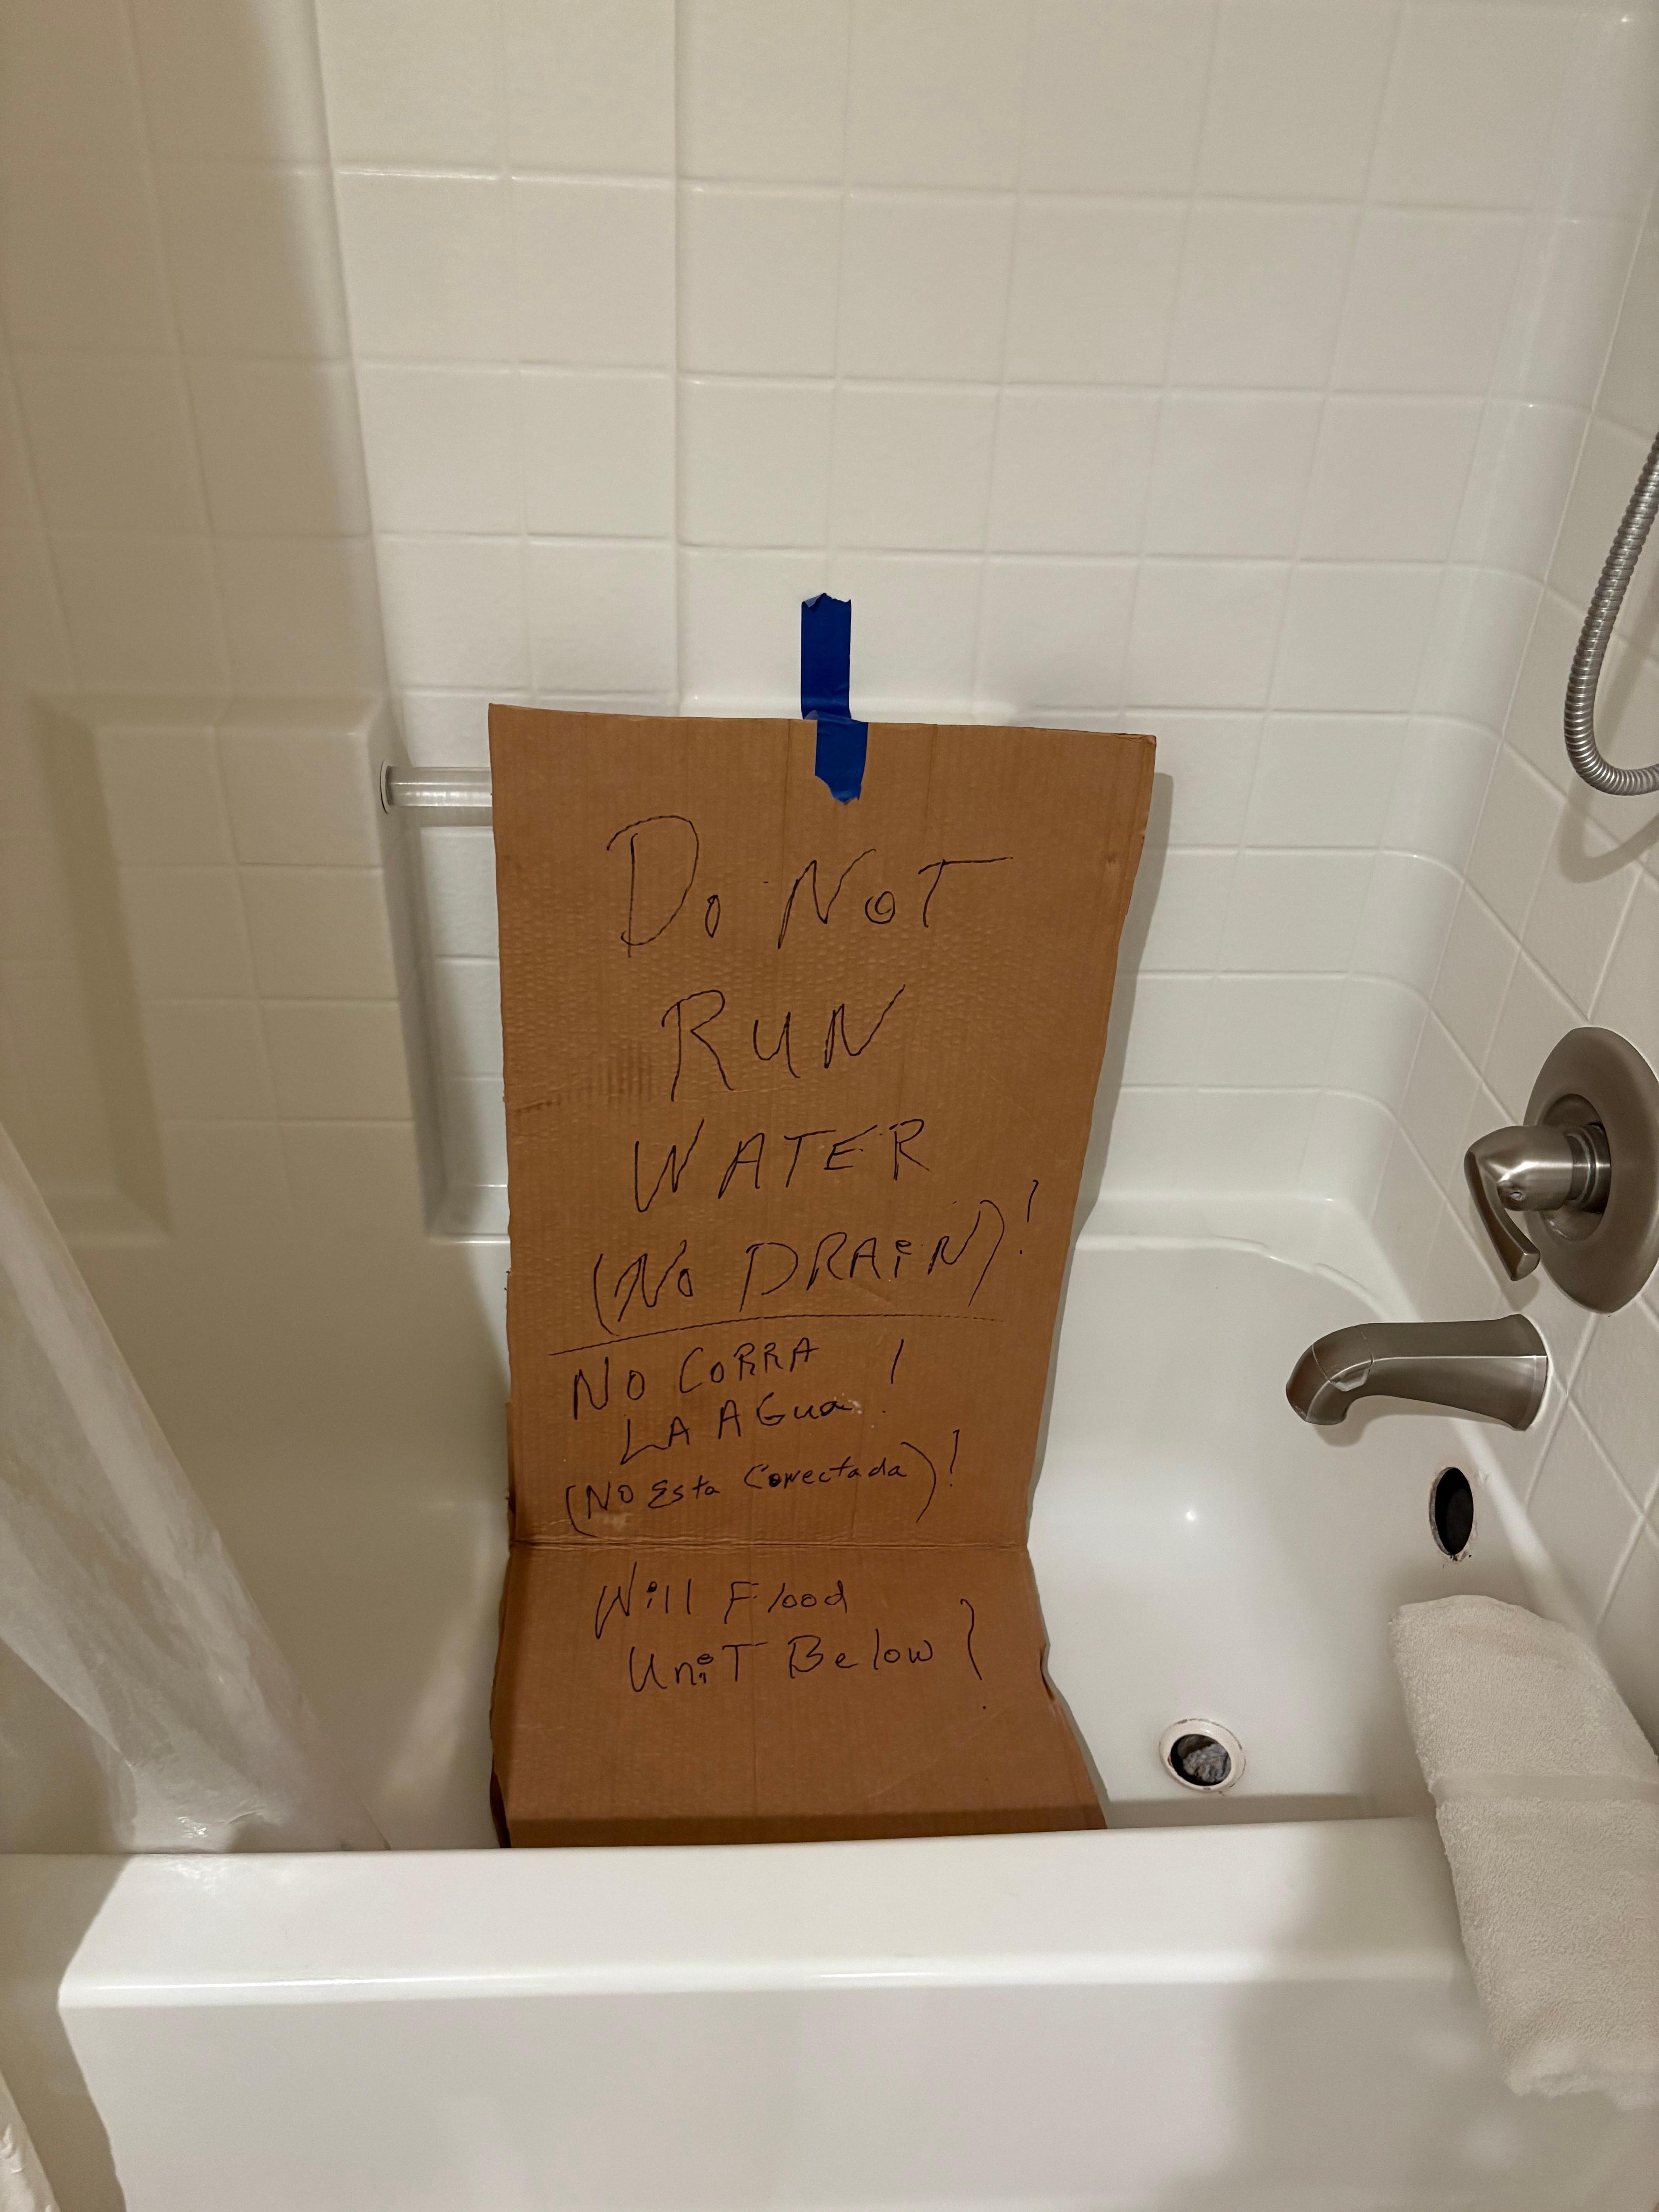 Do NoT
RUN
WATER
(No DRAiN)!
NO CORRA !
LA AGua
(NO Esta Conectada)!
Will Flood
UniT Below!